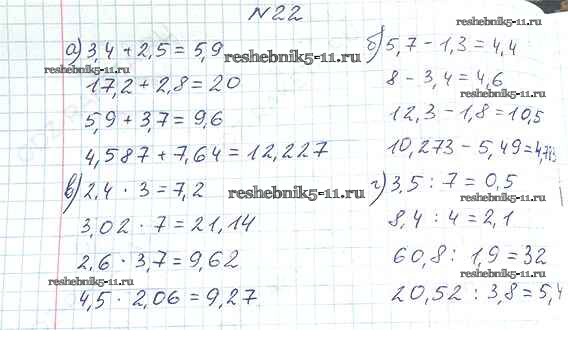 №22
а) 3,4 + 2,5 = 5,9
17,2 + 2,8 = 20
5,9 + 3,7 = 9,6
4,587 + 7,64 = 12,227
б) 5,7 - 1,3 = 4,4
8 - 3,4 = 4,6
12,3 - 1,8 = 10,5
10,273 - 5,49 = 4,783
в) 2,4 · 3 = 7,2
3,02 · 7 = 21,14
2,6 · 3,7 = 9,62
4,5 · 2,06 = 9,27
г) 3,5 : 7 = 0,5
8,4 : 4 = 2,1
60,8 : 1,9 = 32
20,52 : 3,8 = 5,4
reshebnik5-11.ru
reshebnik5-11.ru
reshebnik5-11.ru
reshebnik5-11.ru
reshebnik5-11.ru
reshebnik5-11.ru
reshebnik5-11.ru
reshebnik5-11.ru
reshebnik5-11.ru